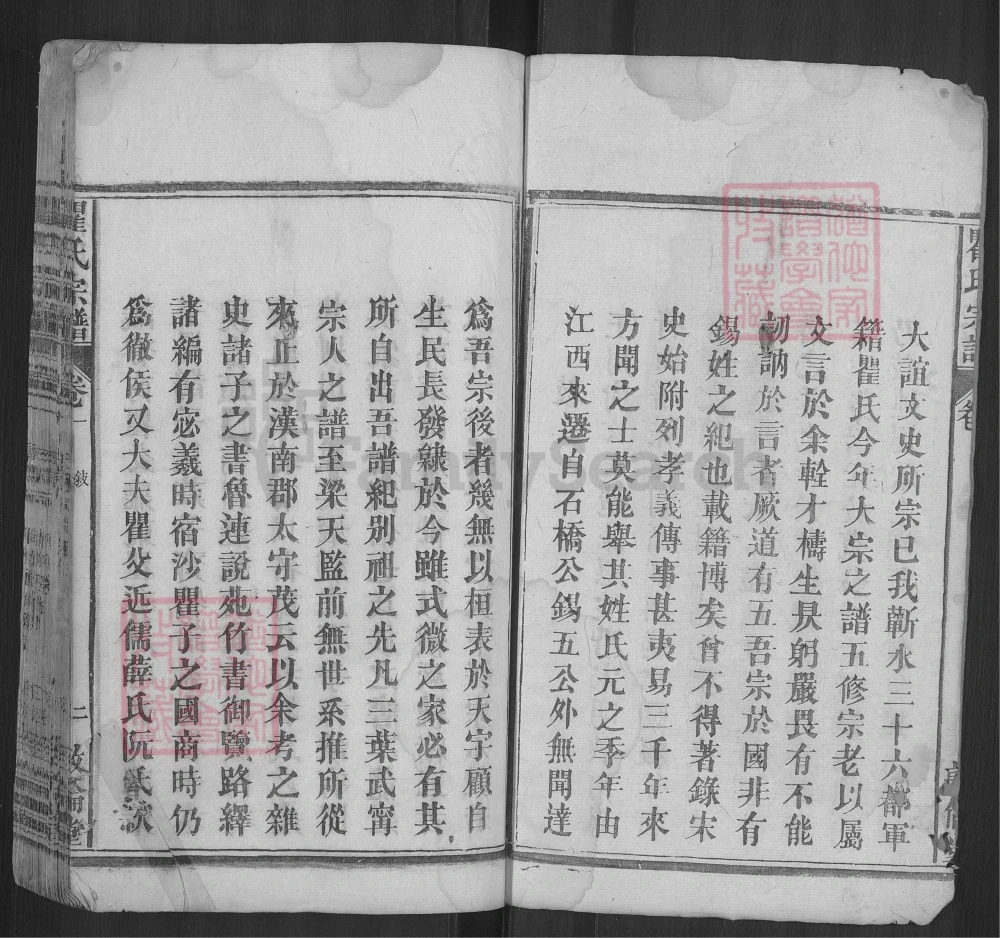 瞿氏宗譜
大誼文史所宗巳我蘄水三十六都軍
籍瞿氏今年大宗之譜五修宗老以屬
文言於余輇才檮生夙躬嚴畏有不能
訒訥於言者厥道有五吾宗於國非有
錫姓之紀也載籍博矣曾不得著錄宋
史始附列孝義傳事甚夷易三千年來
方聞之士莫能舉其姓氏元之季年由
江西來遷自石橋公錫五公外無聞達
爲吾宗後者幾無以相表於天宇顧自
生民長發隸於今雖式微之家必有其
所自出吾譜紀別祖之先凡三葉武甯
宗人之譜至梁天監前無世系推所從
來止於漢南郡太守茂云以余考之雜
史諸子之書魯連說苑竹書御覽路繹
諸編有宓羲時宿沙瞿子之國商時仍
爲徹侯又大夫瞿父近儒薛氏阮氏款
瞿氏宗譜
卷一
敍
二
FamilySearch